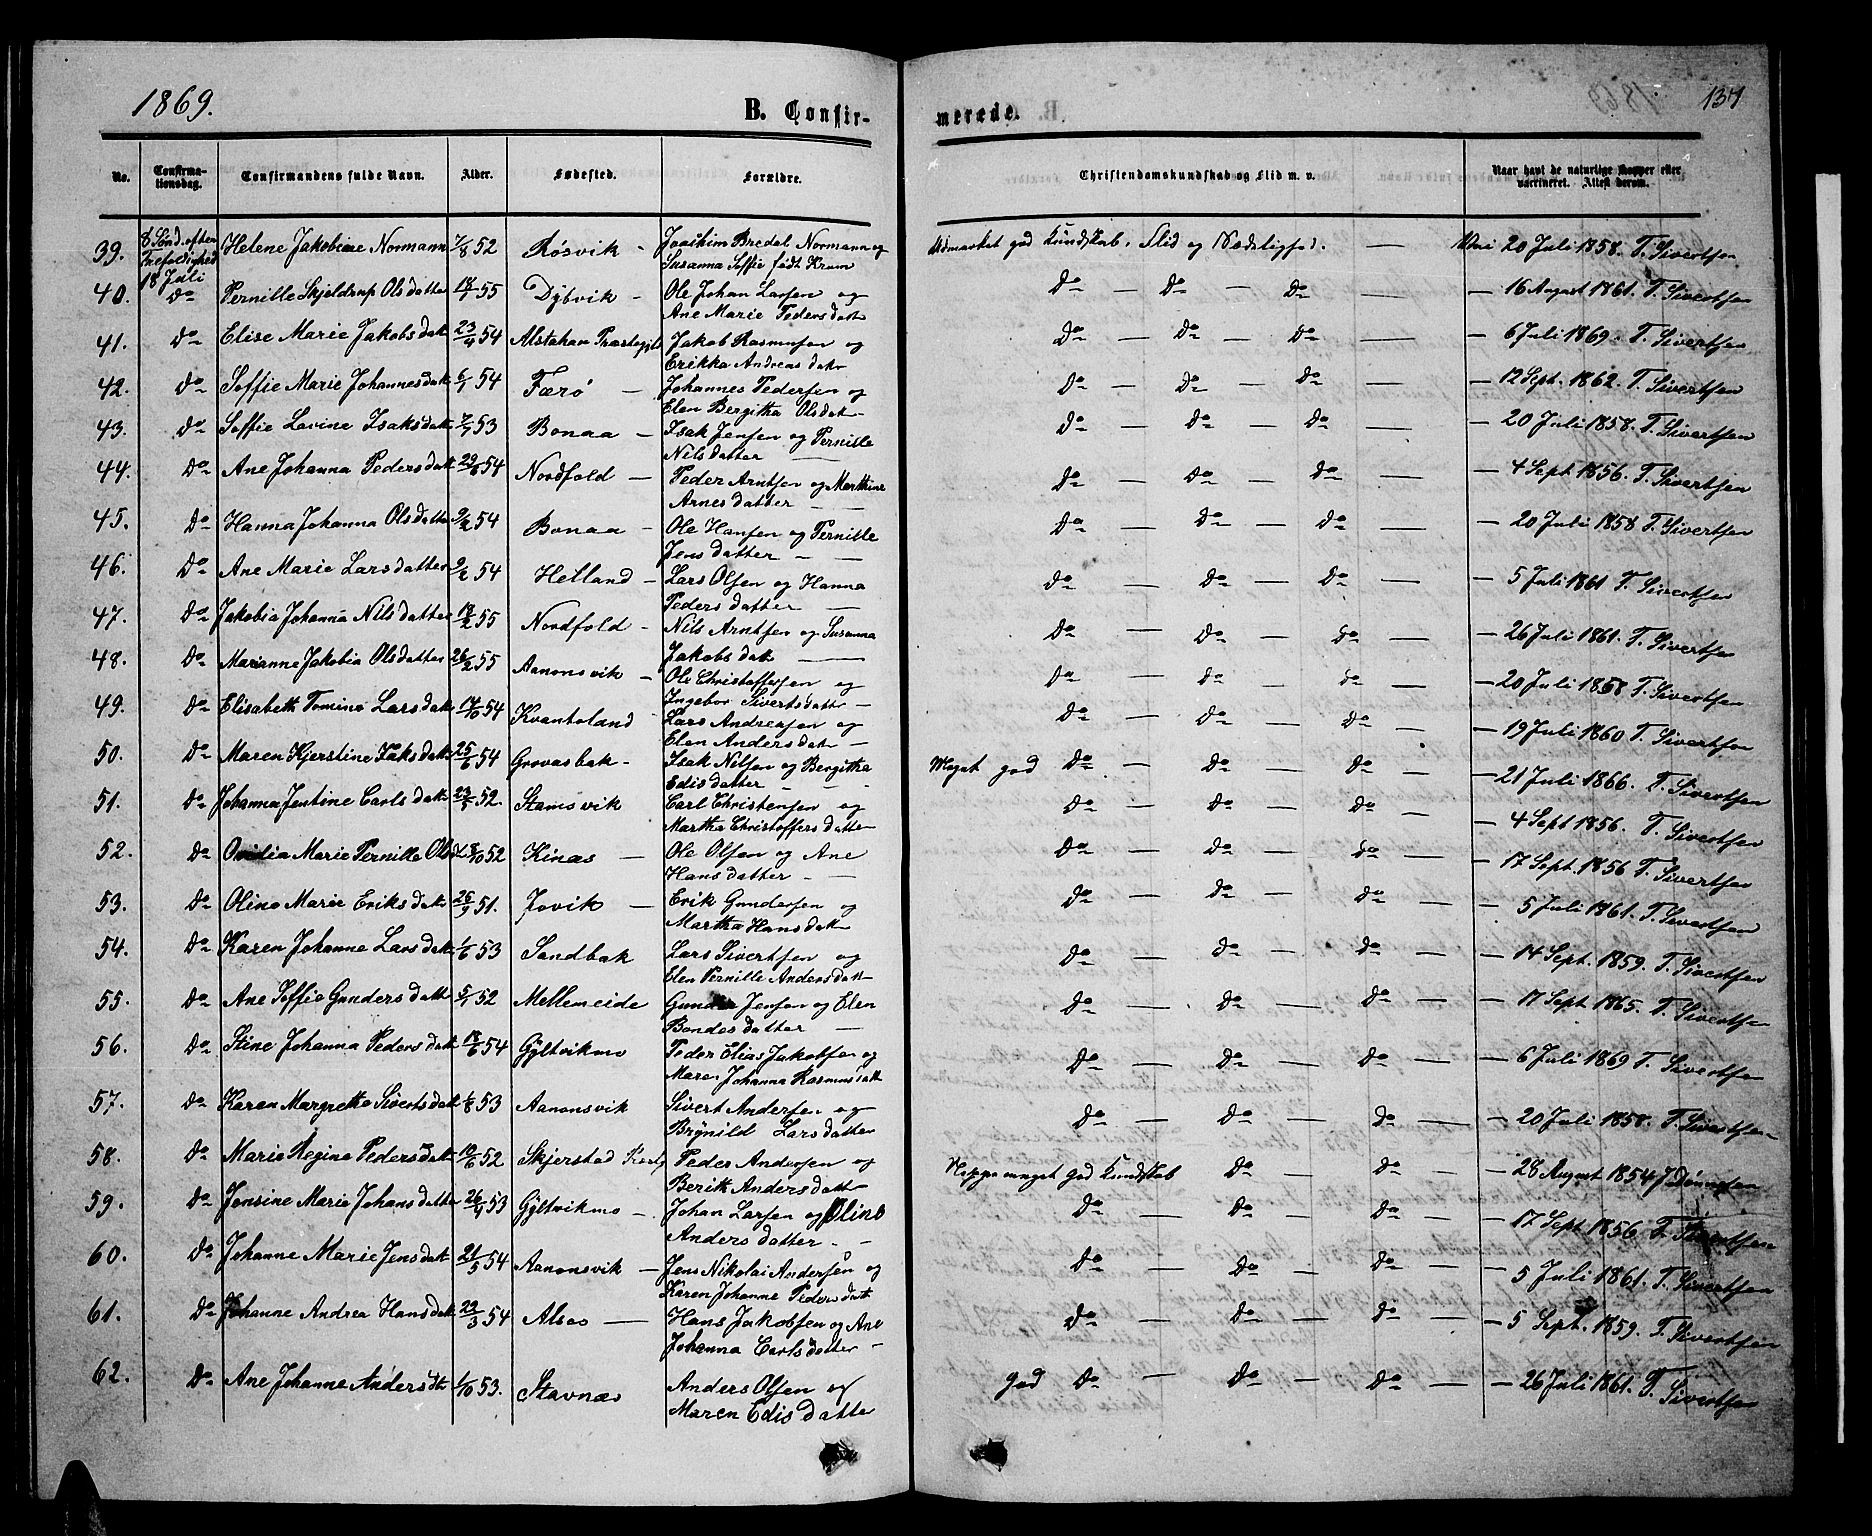 1869.
B. Confir-
merede.
137
No. Confirma-tionsdag. Confirmandens fulde Navn. Alder. Fødested. Forældre. Christendomskundskab og Flid m. v. Naar havt de naturlige Kopper eller vaccineret. Attest derom.
39. 8 Sønd. efter Trefoldighed 18 Juli Helene Jakobine Normann 7/8 52 Røsvik – Joachim Bredal Normann og Susanna Soffie født Kram Udmærket god Kundskab, Flid og Sædelighed. — 20 Juli 1858. T. Sivertsen
40. Do Pernille Skjeldrup Olsdatter 18/1 55 Dybvik – Ole Johan Larsen og Ane Marie Pedersdatt Do – Do – Do — – 16 August 1861. T. Sivertsen
41. Do Elise Marie Jakobsdatt 23/4 54 Alstahau Præstegjld Jakob Rasmusen og Erikka Andreasdatr Do – Do – Do — – 6 Juli 1869. T. Sivertsen
42. Do Soffie Marie Johannesdatt 6/1 54 Færø – Johannes Pedersen og Elen Bergitha Olsdat– Do – Do – Do — – 12 Sept. 1862. T. Sivertsen
43. Do Soffie Lovine Isaksdatt 7/7 53 Bonaa – Isak Jensen og Pernille Nilsdatter — Do – Do – Do — – 20 Juli 1858. T. Sivertsen
44. Do Ane Johanna Pedersdatt 54 Nordfold – Peder Arntsen og Marthine Arnesdatter – Do – Do – Do — – 4 Sept. 1856. T. Sivertsen
45. Do Hanna Johanna Olsdatter 9/2 54 Bonaa – Ole Hansen og Pernille Jensdatter – — Do – Do – Do — – 20 Juli 1858 T. Sivertsen
46. Do Ane Marie Larsdatter 9/2 54 Helland – Lars Olsen og Hanna Pedersdatter — Do – Do – Do — – 5 Juli 1861 T. Sivertsen
47. Do Jakobia Johanna Nilsdatter 55 Nordfold – Nils Arntsen og Susanna Jakobsdatr — Do – Do – Do — – 26 Juli 1861. T. Sivertsen
48. Do Marianne Jakobia Olsdatter 26/2 55 Aanonsvik – Ole Christoffersen og Ingebor Sivertsdatter – Do – Do – Do — – 20 Juli 1858 T. Sivertsen
49. Do Elisabeth Tomine Larsdatt 54 Kvantoland Lars Andreasen og Elen Andersdatr – Do – Do – Do — – 19 Juli 1860 T. Sivertsen
50. Do Maren Kjerstine Isaksdatt 25/6 54 Grovasbak – Isak Nilsen og Bergitha Edisdatter – Meget god Do – Do – Do — – 21 Juli 1866. T. Sivertsen
51. Do Johanna Jentine Carlsdatt 52. Stamsvik Carl Christensen og Martha Christoffersdatter Do – Do – Do — – 4 Sept 1856. T. Sivertsen
52. Do Ovidia Marie Pernille Olsd 8/10 52 Kines – Ole Olsen og Ane Hansdatter – — Do – Do – Do — – 17 Sept. 1856 T. Sivertsen
53. Do Oline Marie Eriksdatr 26/9 51. Jovik – Erik Gundersen og Martha Hansdatr Do – Do – Do — – 5 Juli 1861. T. Sivertsen
54. Do Karen Johanne Larsdatt 1/6 53 Sandbak Lars Sivertsen og Elen Pernille Andersdatt Do – Do – Do — – 14 Sept. 1859. T. Sivertsen
55. Do Ane Soffie Gundersdatt 5/1 52 Mellemeide Gunder Jensen og Elen Bendesdatter — Do – Do – Do — – 17 Sept 1865. T. Sivertsen
56. Do Stine Johanna Pedersdatt 54 Gyltvikmo Peder Elias Jakobsen og Maren Johanna Rasmusdatt Do – Do – Do — – 6 Juli 1869 T. Sivertsen
57. Do Karen Margrethe Sivertsdatt 53 Aanonsvik Sivert Andersen og Brynild Larsdatter Do – Do – Do — – 20 Juli 1858. T. Sivertsen
58. Do Marie Regine Pedersdatt 52 Skjerstad Peder Andersen og Berith Andersdatt meget god Kundskab Do – Do — – 28 August 1854
59. Do Jensine Marie Johansdatter 53 Gyltvikmo – Johan Larsen og Oline Andersdatter – – Do – Do – Do — – 17 Sept. 1856 T. Sivertsen
60. Do Johanne Marie Jensdatt 21/5 54 Aanonsvik – Jens Nikolai Andersen og Karen Johanne Pedersdatt Do – Do – Do — – 5 Juli 1861. T. Sivertsen
61. Do Johanne Andrea Hansdatt 54 Alsos — Hans Jakobsen og Ane Johanna Carlsdatter – Do – Do – Do — – 5 Sept. 1859. T. Sivertsen
62. Do Ane Johanne Andersdtr 1/10 53. Stavnæs Anders Olsen og Maren Edisdatter god Do – Do – Do — – 26 Juli 1861. T. Sivertsen